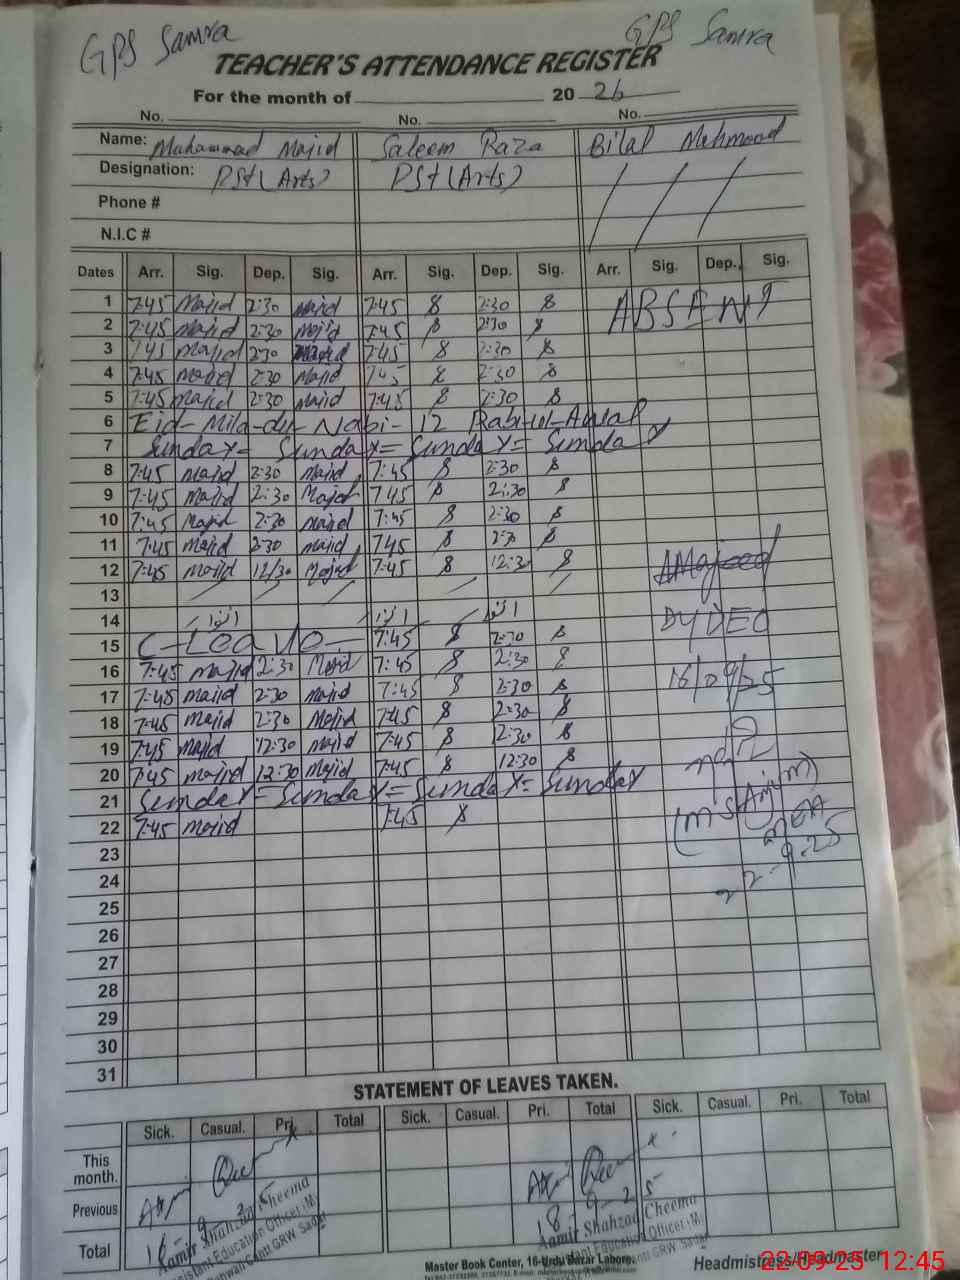 GPS Samra GPS Samra
TEACHER'S ATTENDANCE REGISTER
For the month of 20 26
No. No. No.
Name: Muhammad Majid Saleem Raza Bilal Mehmood
Designation: PST (Arts) PST (Arts)
Phone #
N.I.C #
Dates Arr. Sig. Dep. Sig. Arr. Sig. Dep. Sig. Arr. Sig. Dep. Sig.
1 7:45 Majid 2:30 Majid 7:45 8 2:30 8 ABSENT
2 7:45 majid 2:30 majid 7:45 8 2:30 8
3 7:45 majid 2:30 Majid 7:45 8 2:30 8
4 7:45 majid 2:30 Majid 7:45 8 2:30 8
5 7:45 majid 2:30 majid 7:45 8 2:30 8
6 Eid-Milad-un-Nabi- 12 Rabi-ul-Awal
7 Sunday = Sunday = Sunday = Sunday
8 7:45 majid 2:30 majid 7:45 8 2:30 8
9 7:45 majid 2:30 Majid 7:45 8 2:30 8
10 7:45 Majid 2:30 majid 7:45 8 2:30 8
11 7:45 Majid 2:30 majid 7:45 8 2:30 8
12 7:45 majid 12/30 Majid 7:45 8 12:30 8 AMajeed
13
14 اتوار اتوار اتوار DYDEO
15 C-Leave 7:45 8 2:30 8
16 7:45 majid 2:30 Majid 7:45 8 2:30 8 16/09/25
17 7:45 majid 2:30 majid 7:45 8 2:30 8
18 7:45 majid 2:30 Majid 7:45 8 2:30 8
19 7:45 majid 12:30 majid 7:45 8 2:30 8
20 7:45 majid 12:30 Majid 7:45 8 12:30 8
21 Sunday = Sunday = Sunday = Sunday (M'S Anjum)
22 7:45 majid 7:45 8 MEA
23 22-9-25
24
25
26
27
28
29
30
31
STATEMENT OF LEAVES TAKEN.
Sick. Casual. Pri. Total Sick. Casual. Pri. Total Sick. Casual. Pri. Total
This month.
Previous
18-9-25 18-9-25
Total Aamir Shahzad Cheema Aamir Shahzad Cheema
Assistant Education Officer (M) Assistant Education Officer (M)
Cantt GRW. Sadar GRW. Sadar
Master Book Center, 16-Urdu Bazar Lahore. Headmistress/Headmaster
22-09-25 12:45